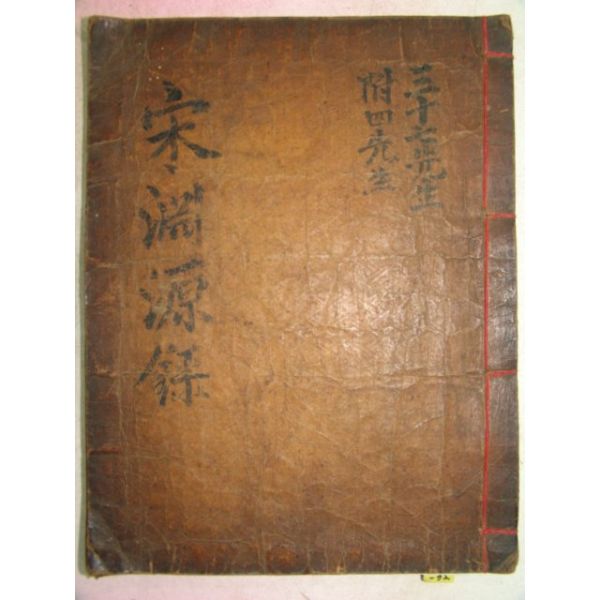 三十六先生
附四先生
宋淵源錄